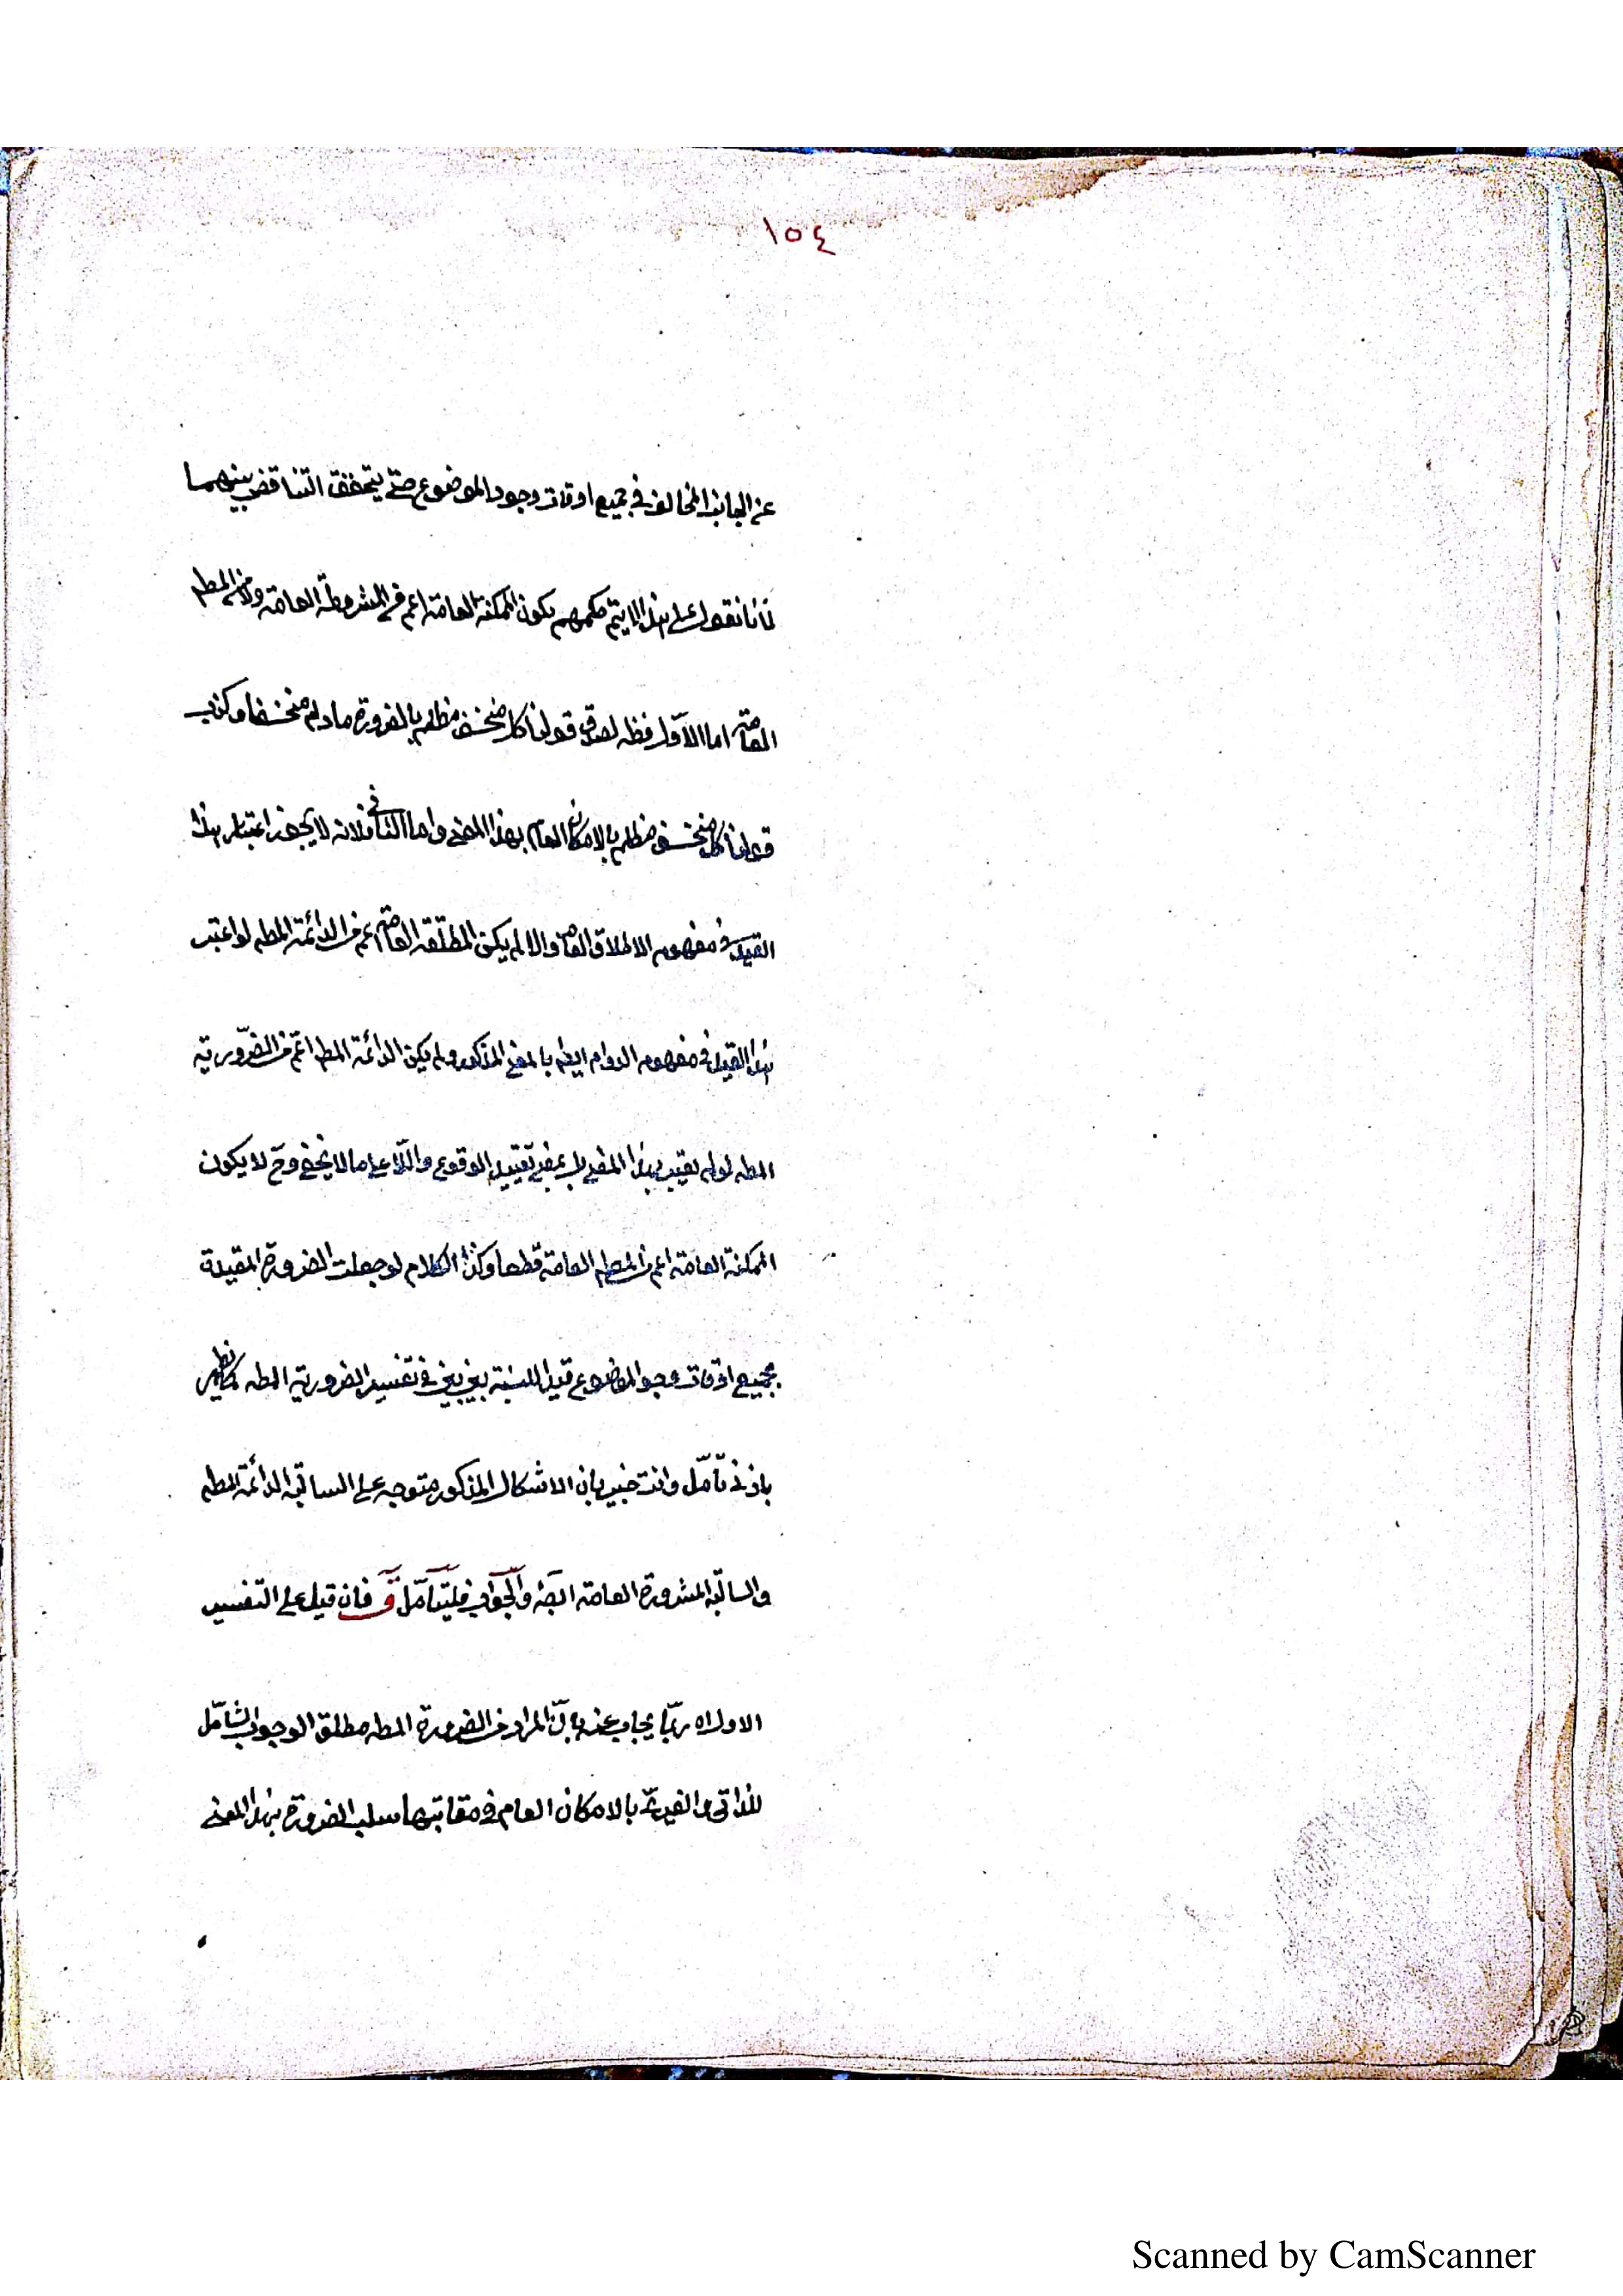 ١٥٤
عن الجانب المخالف في جميع اوقات وجود الموضوع حتى يتحقق التناقض بينهما
لأنا نقول على هذا لا يتم حكمهم بكون الممكنة العامة اعم من المشروطة العامة ولا من المطه
العامة اما الاوّل فظه لصدق قولنا كل منخسف مظلم بالضرورة ما دام منخسفا وكذب
قولنا كل منخسف مظلم بالامكان العام بهذا المعنى واما الثاني فلانه لا يجوز اعتبار هذا
القيد في مفهوم الاطلاق العام والا لم يكن المطلقة العامة اعم من الدائمة المطه لو اعتبر
هذا القيد في مفهوم الدوام ايضا بالمعنى المذكور ولم يكن الدائمة المطه اعمّ من الضّرورية
المطه لو لم يعتبر بهذا المعنى بل بمعنى تقييد الوقوع واللّا على ما لا يخفى وح لا يكون
الممكنة العامة اعم من المطه العامة قطعا وكذا الكلام لو جعلت الضرورة المقيدة
بجميع اوقات وجود الموضوع قيد النسبة بين بين في تفسير الضرورية المطه كما يظهر
بادنى تأمّل وانت خبير بان الاشكال المذكور متوجه على السالبة الدائمة المطه
والسالبة المشروطة العامة ايضا والجواب فليتأمّل قو فان قيل على التفسير
الاول اه ربّما يجاب عنه بانّ المراد من الضرورة المطه مطلق الوجوب الشامل
للذاتي والغيريّ بالامكان العام في مقابلتها سلب الضرورة بهذا المعنى
Scanned by CamScanner